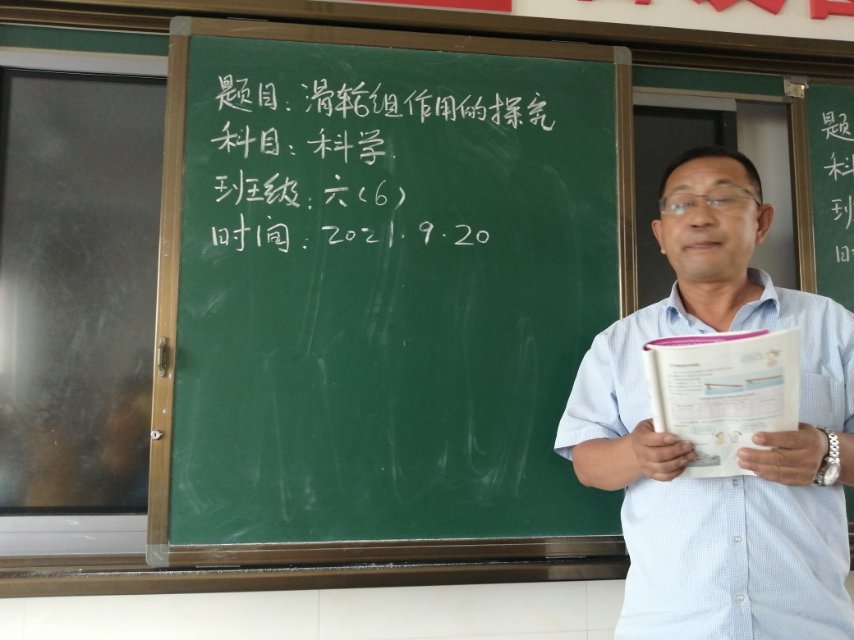 题目：滑轮组作用的探究
科目：科学
班级：六（6）
时间：2021.9.20
题
科
班
时